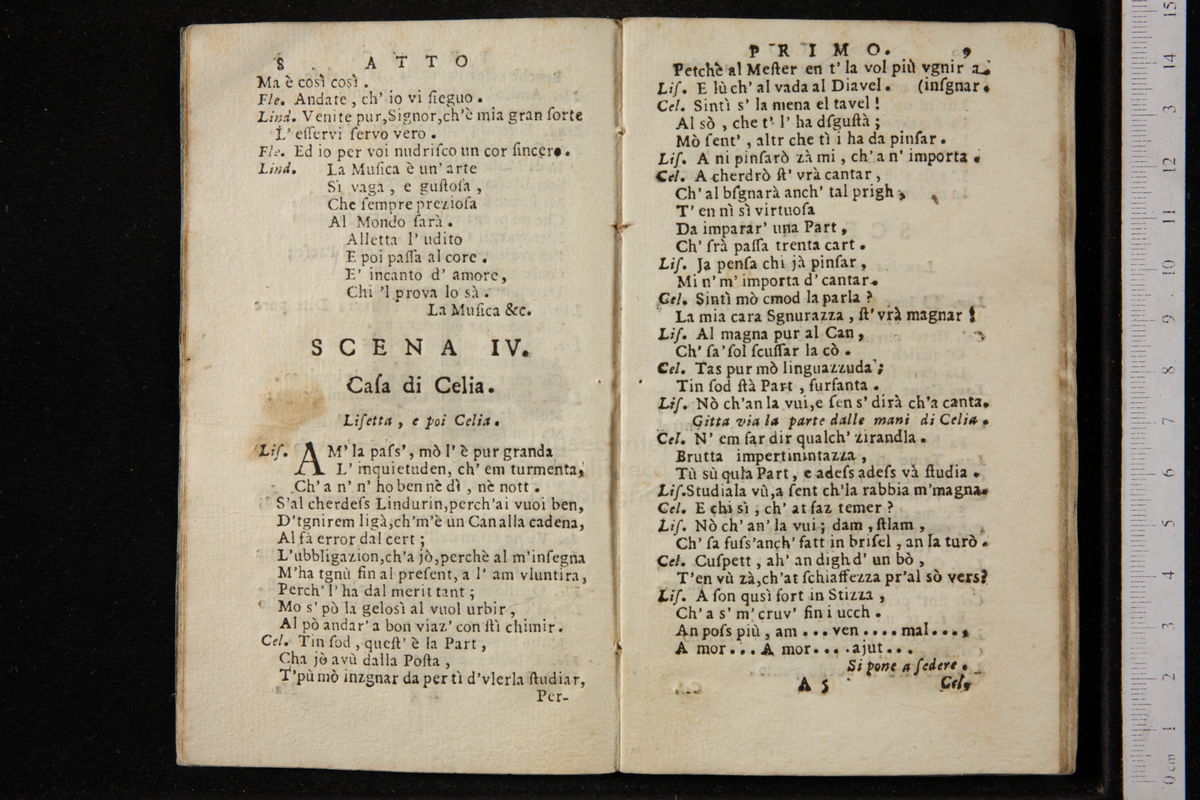 8 ATTO
Ma è così così.
Fle. Andate, ch' io vi ſieguo.
Lind. Venite pur, Signor, ch'è mia gran ſorte
L' eſſervi ſervo vero.
Fle. Ed io per voi nudriſco un cor ſincero.
Lind. La Muſica è un' arte
Sì vaga, e guſtoſa,
Che ſempre prezioſa
Al Mondo ſarà.
Alletta l' udito
E poi paſſa al core.
E' incanto d' amore,
Chi 'l prova lo sà.
La Muſica &c.
SCENA IV.
Caſa di Celia.
Liſetta, e poi Celia.
Liſ. AM' la paſs', mò l' è pur granda
L' inquietuden, ch' em turmenta,
Ch' a n' n' ho ben nè dì, nè nott.
S'al cherdeſs Lindurin, perch'ai vuoi ben,
D'tgnirem ligà, ch'm'è un Can alla cadena,
Al fà error dal cert;
L'ubbligazion, ch'a jò, perchè al m'inſegna
M'ha tgnù fin al preſent, a l' am vluntira,
Perch' l' ha dal merit tant;
Mo s' pò la geloſì al vuol urbir,
Al pò andar' a bon viaz' con ſtì chimir.
Cel. Tin ſod, queſt' è la Part,
Cha jò avù dalla Poſta,
T'pù mò inzgnar da per tì d'vlerla ſtudiar,
Per-
PRIMO. 9
Petchè al Meſter en t' la vol più vgnir a
Liſ. E lù ch' al vada al Diavel. (inſgnar.
Cel. Sintì s' la mena el tavel!
Al sò, che t' l' ha dſguſtà;
Mò ſent', altr che tì i ha da pinſar.
Liſ. A ni pinſarò zà mi, ch' a n' importa.
Cel. A cherdrò ſt' vrà cantar,
Ch' al bſgnarà anch' tal prigh,
T' en nì sì virtuoſa
Da imparar' una Part,
Ch' ſrà paſſa trenta cart.
Liſ. Ja penſa chi jà pinſar,
Mi n' m' importa d' cantar.
Cel. Sintì mò cmod la parla?
La mia cara Sgnurazza, ſt' vrà magnar!
Liſ. Al magna pur al Can,
Ch' ſa' ſol ſcuſſar la cò.
Cel. Tas pur mò linguazzuda;
Tin ſod ſtà Part, furfanta.
Liſ. Nò ch'an la vui, e ſen s' dirà ch'a canta.
Gitta via la parte dalle mani di Celia.
Cel. N' em far dir qualch' zirandla.
Brutta impertinintazza,
Tù sù qula Part, e adeſs adeſs và ſtudia.
Liſ. Studiala vù, a ſent ch'la rabbia m'magna.
Cel. E chi sì, ch' at faz temer?
Liſ. Nò ch' an' la vui; dam, ſtlam,
Ch' ſa fuſs'anch' fatt in briſel, an la turò.
Cel. Cuſpett, ah' an digh d' un bò,
T'en vù zà, ch'at ſchiaffezza pr'al sò vers?
Liſ. A ſon qusì fort in Stizza,
Ch' a s' m' cruv' fin i ucch.
An poſs più, am ... ven .... mal....,
A mor... A mor.... ajut...
Si pone a ſedere.
A 5 Cel.